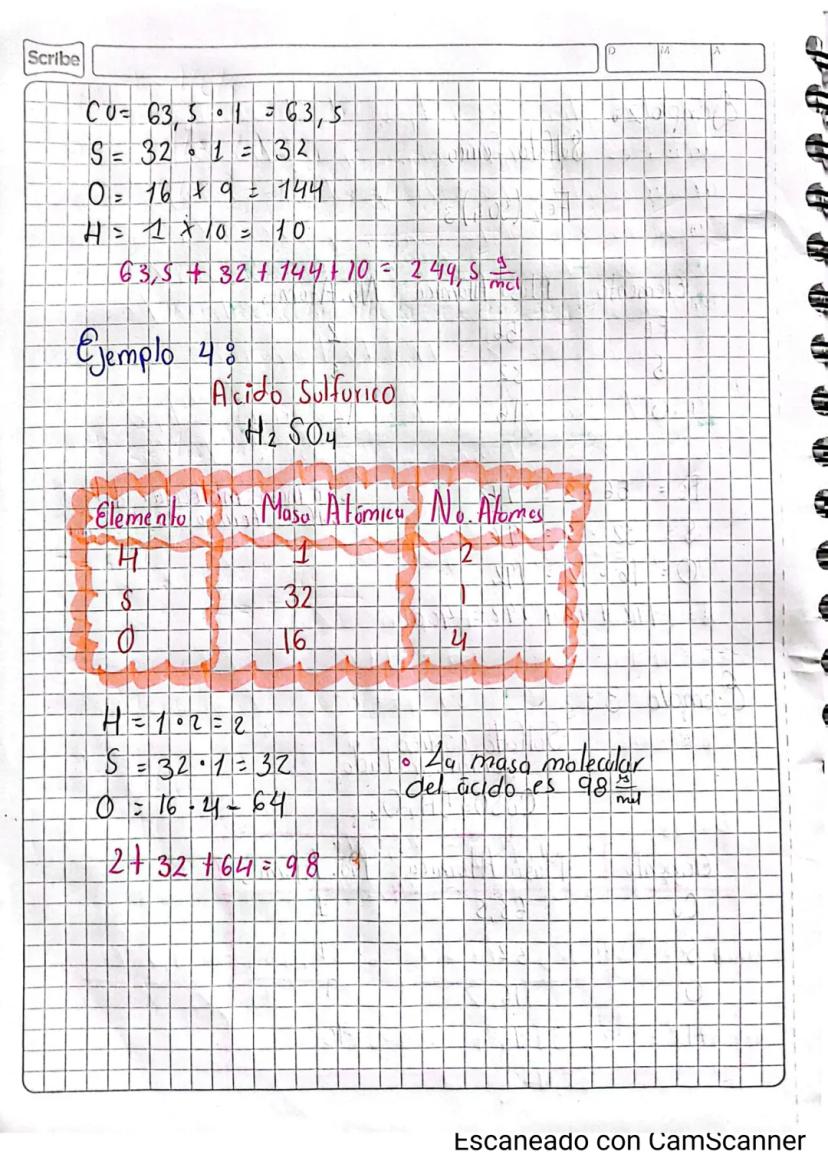 Scribe
D M A
CU= 63,5 • 1 = 63,5
S = 32 • 1 = 32
O = 16 x 9 = 144
H = 1 x 10 = 10
63,5 + 32 + 144 + 10 = 249,5 g/mol
Ejemplo 4:
Ácido Sulfurico
H₂ SO₄
Elemento Masa Atómica No. Átomos
H 1 2
S 32 1
O 16 4
H = 1 • 2 = 2
S = 32 • 1 = 32
O = 16 • 4 = 64
• La masa molecular
del ácido es 98 g/mol
2 + 32 + 64 = 98
Escaneado con CamScanner